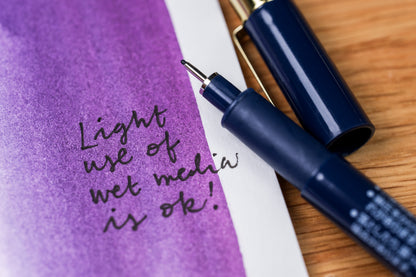 Light
use of
wet media
is ok!